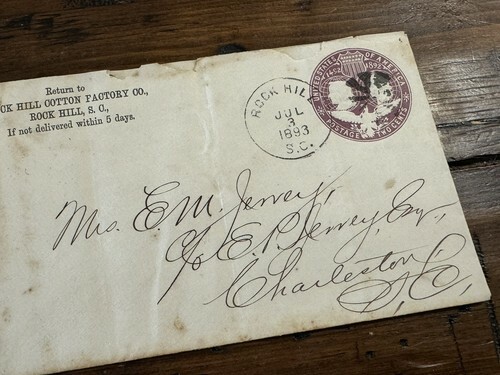 Return to
CK HILL COTTON FACTORY CO.,
ROCK HILL, S. C.,
If not delivered within 5 days.
ROCK HILL
JUL
3
1893
S.C.
UNITED STATES OF AMERICA
1492 1892
POSTAGE TWO CENTS
Mrs. E. M. Jervey,
c/o E. P. Jervey, Esq,
Charleston,
S, C,